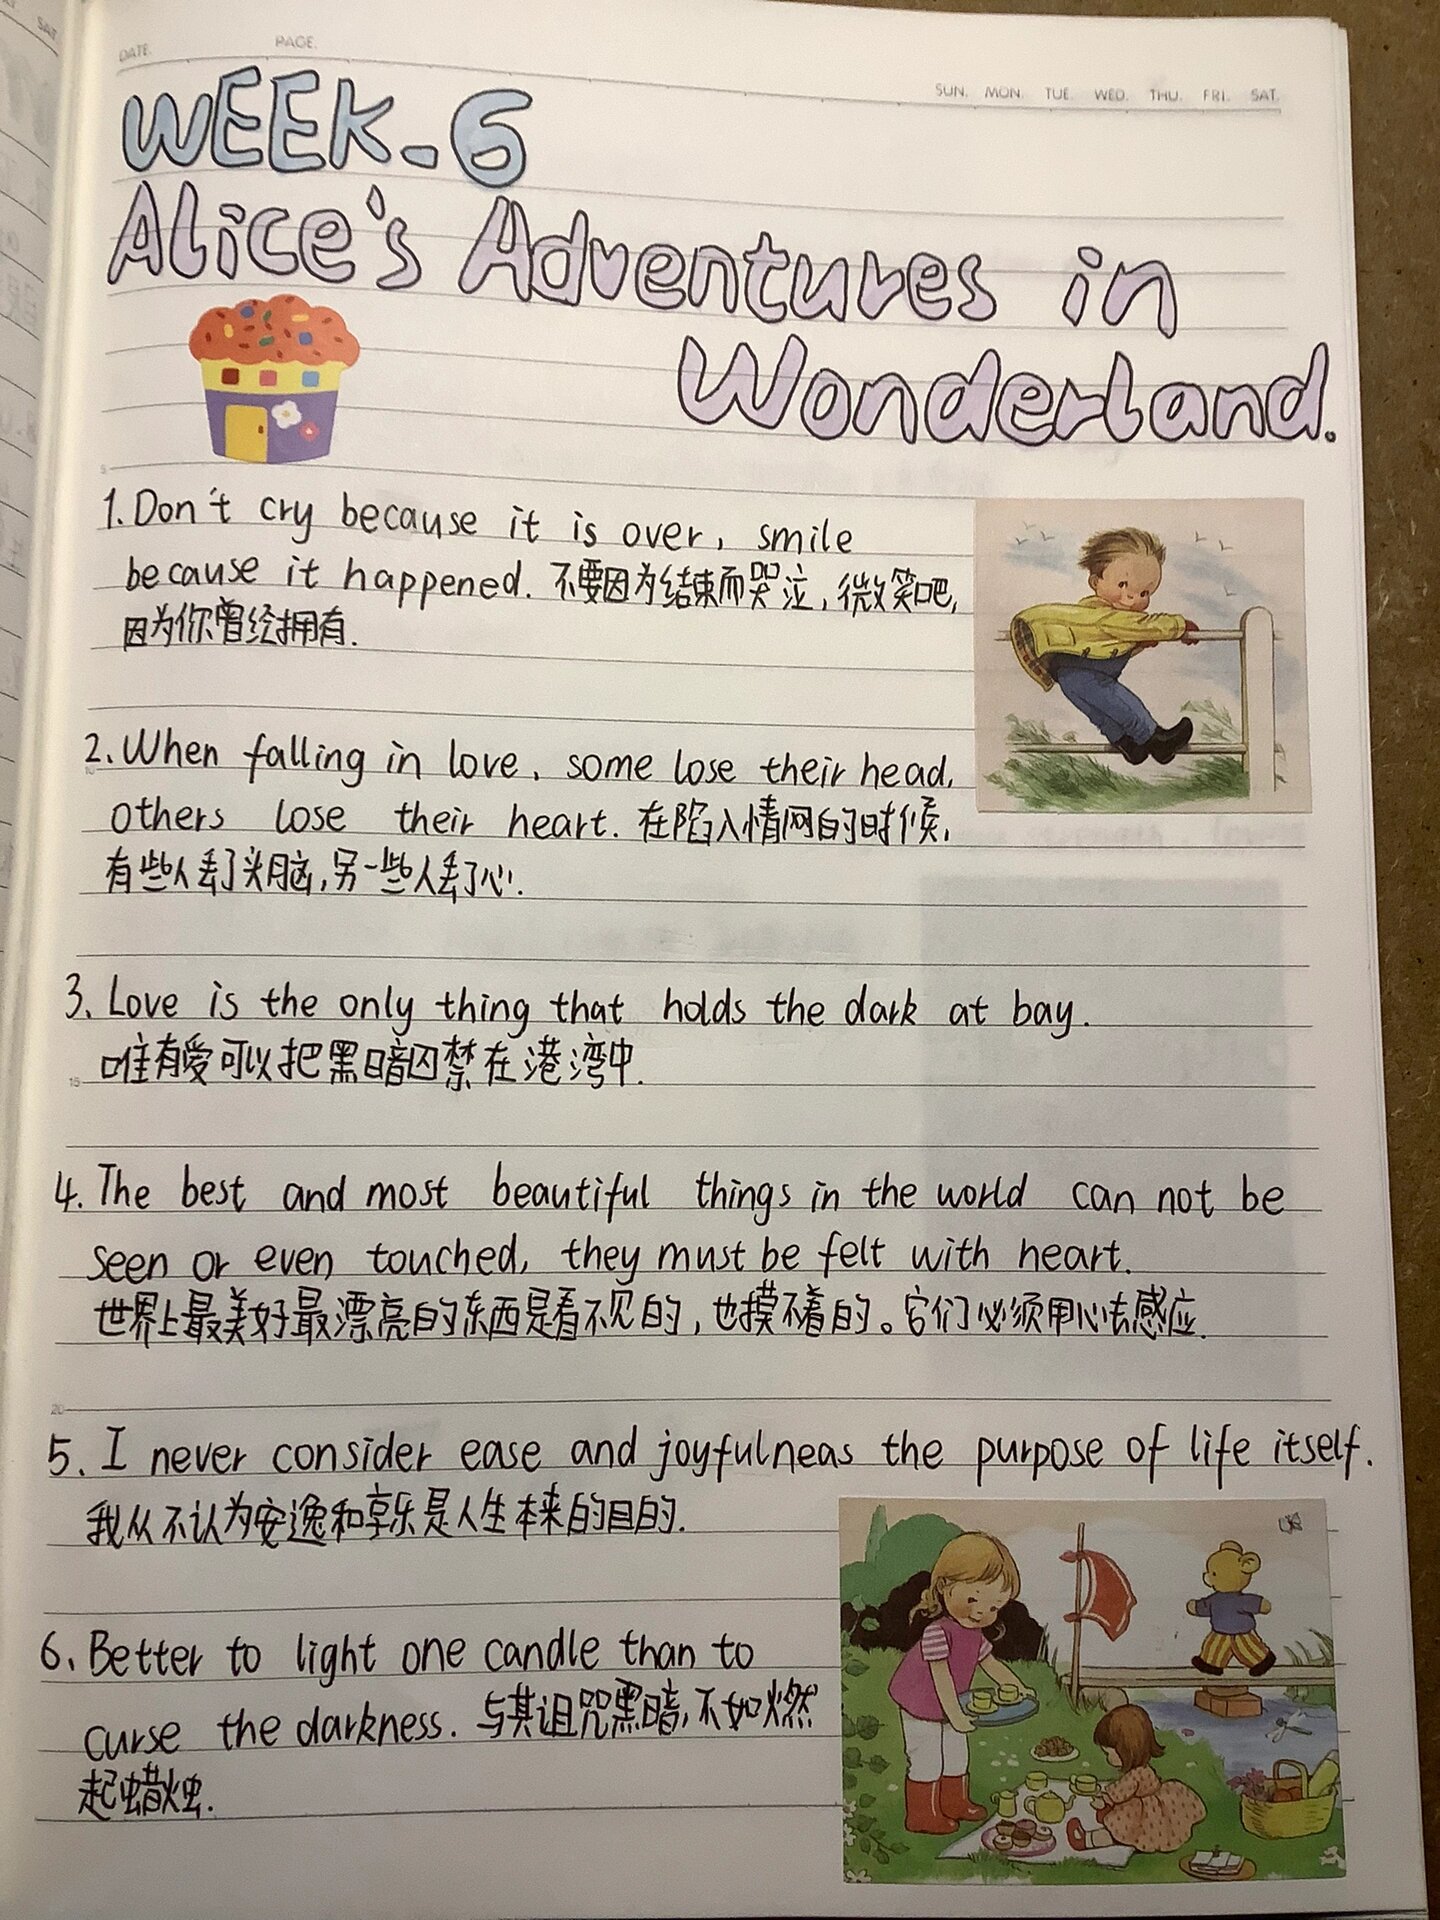 DATE. PAGE.
SUN. MON. TUE. WED. THU. FRI. SAT.
WEEK-6
Alice's Adventures in
Wonderland.
1. Don't cry because it is over, smile
because it happened. 不要因为结束而哭泣,微笑吧,
因为你曾经拥有.
2. When falling in love, some lose their head,
others lose their heart. 在陷入情网的时候,
有些人丢了头脑,另一些人丢了心.
3. Love is the only thing that holds the dark at bay.
唯有爱可以把黑暗囚禁在港湾中.
4. The best and most beautiful things in the world can not be
seen or even touched, they must be felt with heart.
世界上最美好最漂亮的东西是看不见的,也摸不着的。它们必须用心去感应.
5. I never consider ease and joyfulneas the purpose of life itself.
我从不认为安逸和享乐是人生本来的目的.
6. Better to light one candle than to
curse the darkness. 与其诅咒黑暗,不如燃
起蜡烛.